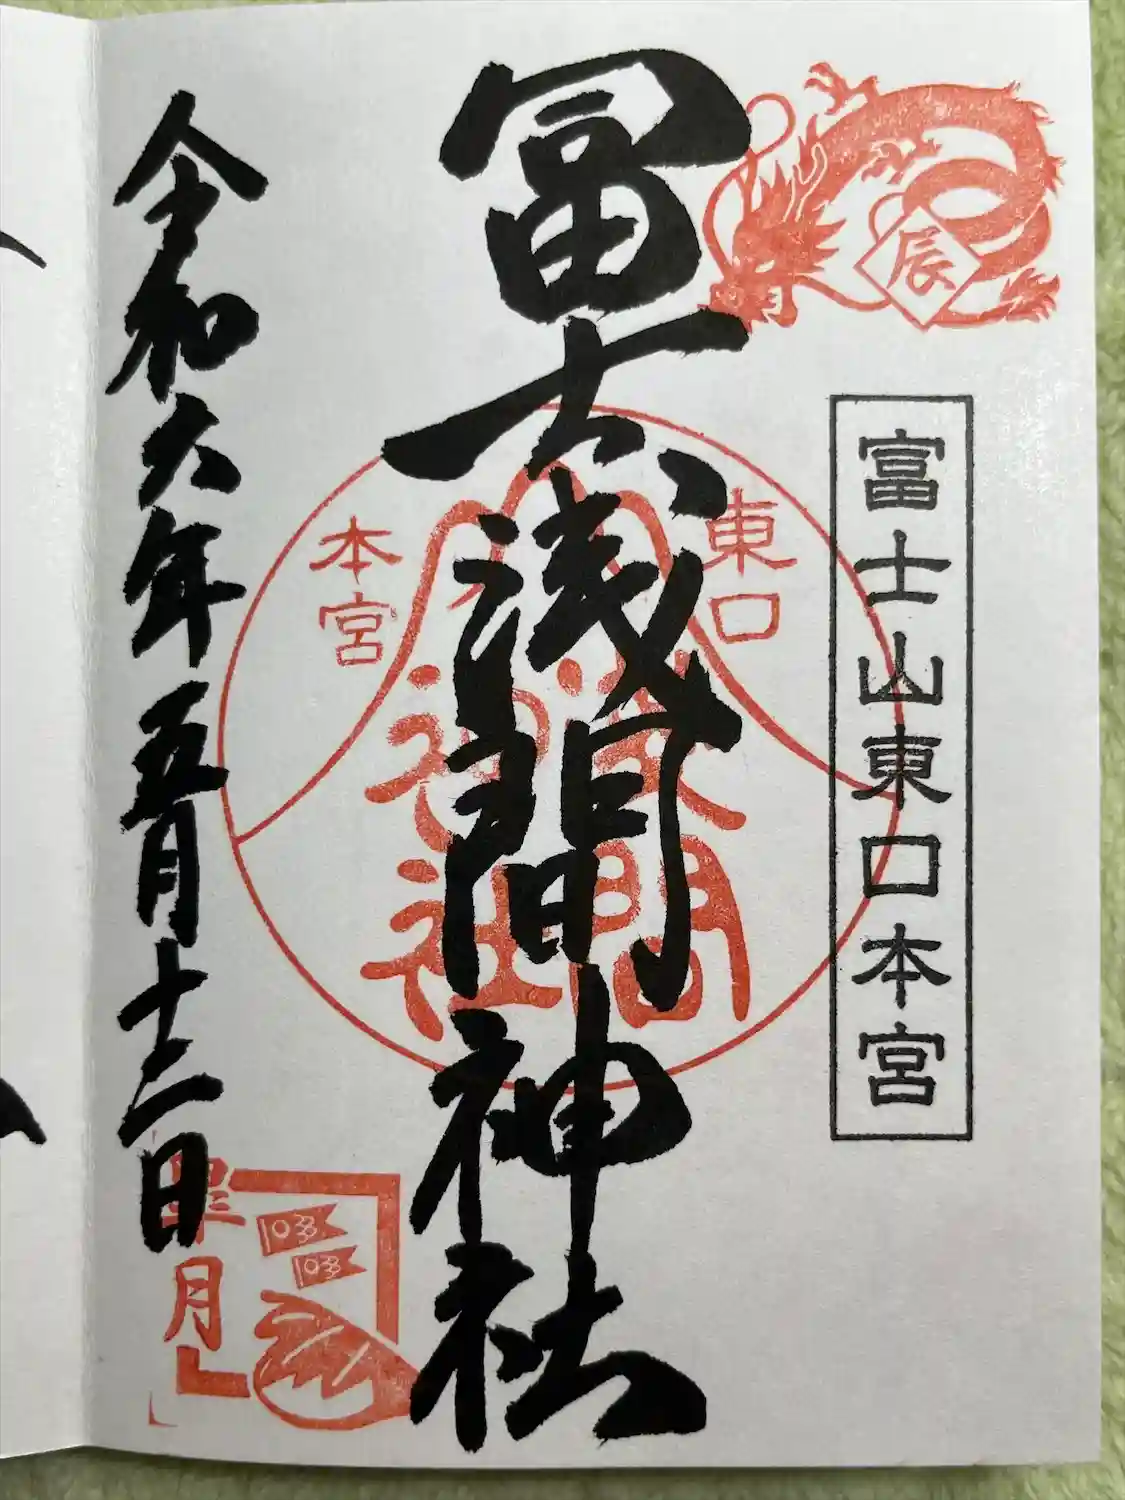 辰
富士山東口本宮
冨士浅間神社
東口
本宮
浅間
神社
令和六年五月十二日
皐月